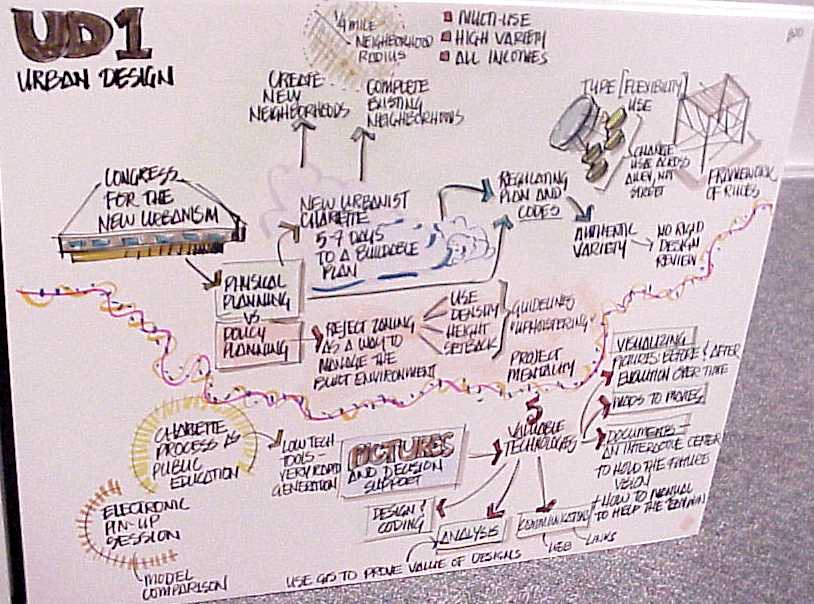 UD1
URBAN DESIGN
1/4 MILE
NEIGHBORHOOD
RADIUS
MULTI-USE
HIGH VARIETY
ALL INCOMES
CREATE
NEW
NEIGHBORHOODS
COMPLETE
EXISTING
NEIGHBORHOODS
TYPE [FLEXIBILITY]
USE
CHANGE
USE ACROSS
ALLEY, NOT
STREET
FRAMEWORK
OF RULES
CONGRESS
FOR THE
NEW URBANISM
NEW URBANIST
CHARETTE
5-7 DAYS
TO A BUILDABLE
PLAN
REGULATING
PLAN AND
CODES
AUTHENTIC
VARIETY
NO RIGID
DESIGN
REVIEW
PHYSICAL
PLANNING
VS
POLICY
PLANNING
REJECT ZONING
AS A WAY TO
MANAGE THE
BUILT ENVIRONMENT
USE
DENSITY
HEIGHT
SETBACK
GUIDELINES
"UPHOLSTERING"
PROJECT
MENTALITY
VISUALIZING
PICTURES BEFORE & AFTER
EVOLUTION OVER TIME
MODS TO MOVIES
DOCUMENTS -
AN INTERACTIVE CENTER
TO HOLD THE FUTURE
VISION
+ HOW TO MANUAL
TO HELP THE
CHARETTE
PROCESS AS
PUBLIC
EDUCATION
LOW TECH
TOOLS -
VERY RAPID
GENERATION
PICTURES
AND DECISION
SUPPORT
5
VALUABLE
TECHNOLOGIES
DESIGN &
CODING
ANALYSIS
COMMUNICATING
WEB
LINKS
ELECTRONIC
PIN-UP
SESSION
MODEL
COMPARISON
USE GIS TO PROVE VALUE OF DESIGNS